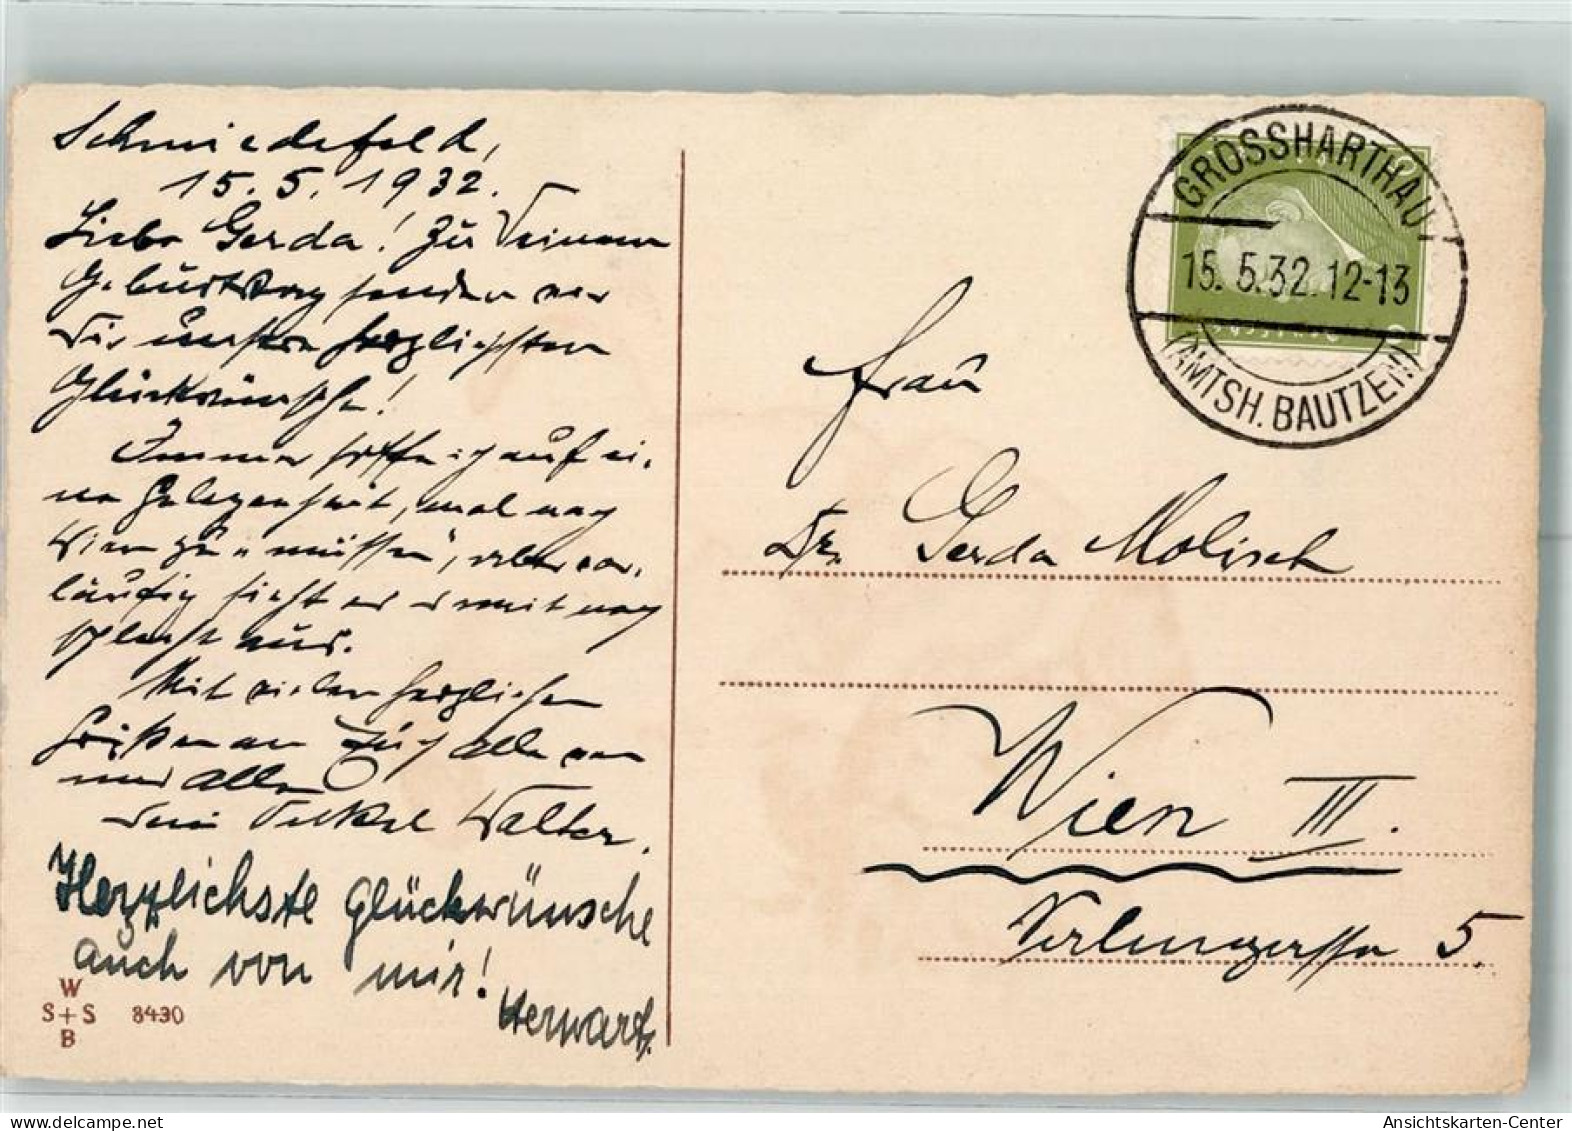 Schmiedefeld,
15.5.1932.
Liebe Gerda! Zu Deinem
Geburtstag senden wir
Dir unsere herzlichsten
Glückwünsche!
Immer hoffe ich auf ei-
ne Gelegenheit, mal nach
Wien zu „müssen", aber vor-
läufig sieht es damit noch
schlecht aus.
Mit vielen herzlichen
Grüßen an Euch alle von
uns allen
Dein Onkel Walter.
Herzlichste Glückwünsche
auch von mir!
Herwart.
W
S+S 8430
B
GROSSHARTHAU
15.5.32.12-13
(AMTSH. BAUTZEN)
Frau
Dr. Gerda Molisch
Wien III.
5.
Ansichtskarten-Center